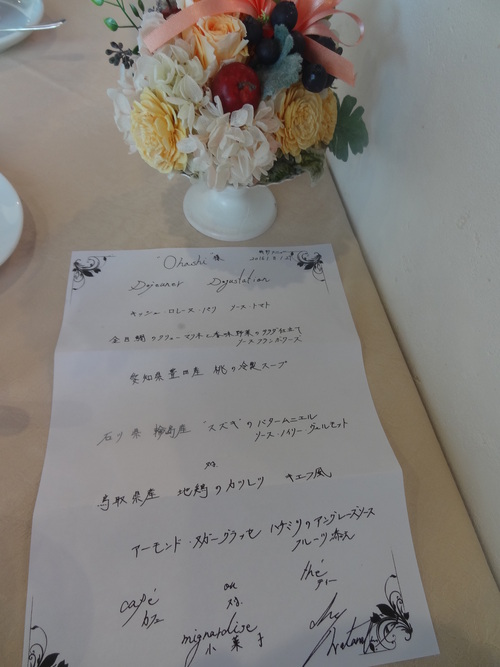 "Ohashi" 様
Dejeuner Degustation
キッシュ・ロレーヌ・パリ ソース・トマト
金目鯛のマリネと香味野菜のサラダ仕立て
愛知県豊田産 桃の冷製スープ
石川県 輪島産 "スズキ"のバタームニエル
ソース・ノイリー ヴェルモット
又は
鳥取県産 地鶏のカツレツ キエフ風
アーモンド・ヌガーグラッセ ハチミツのアングレーズソース
フルーツ添え
café ou thé
カフェ 又は ティー
mignardise
小菓子